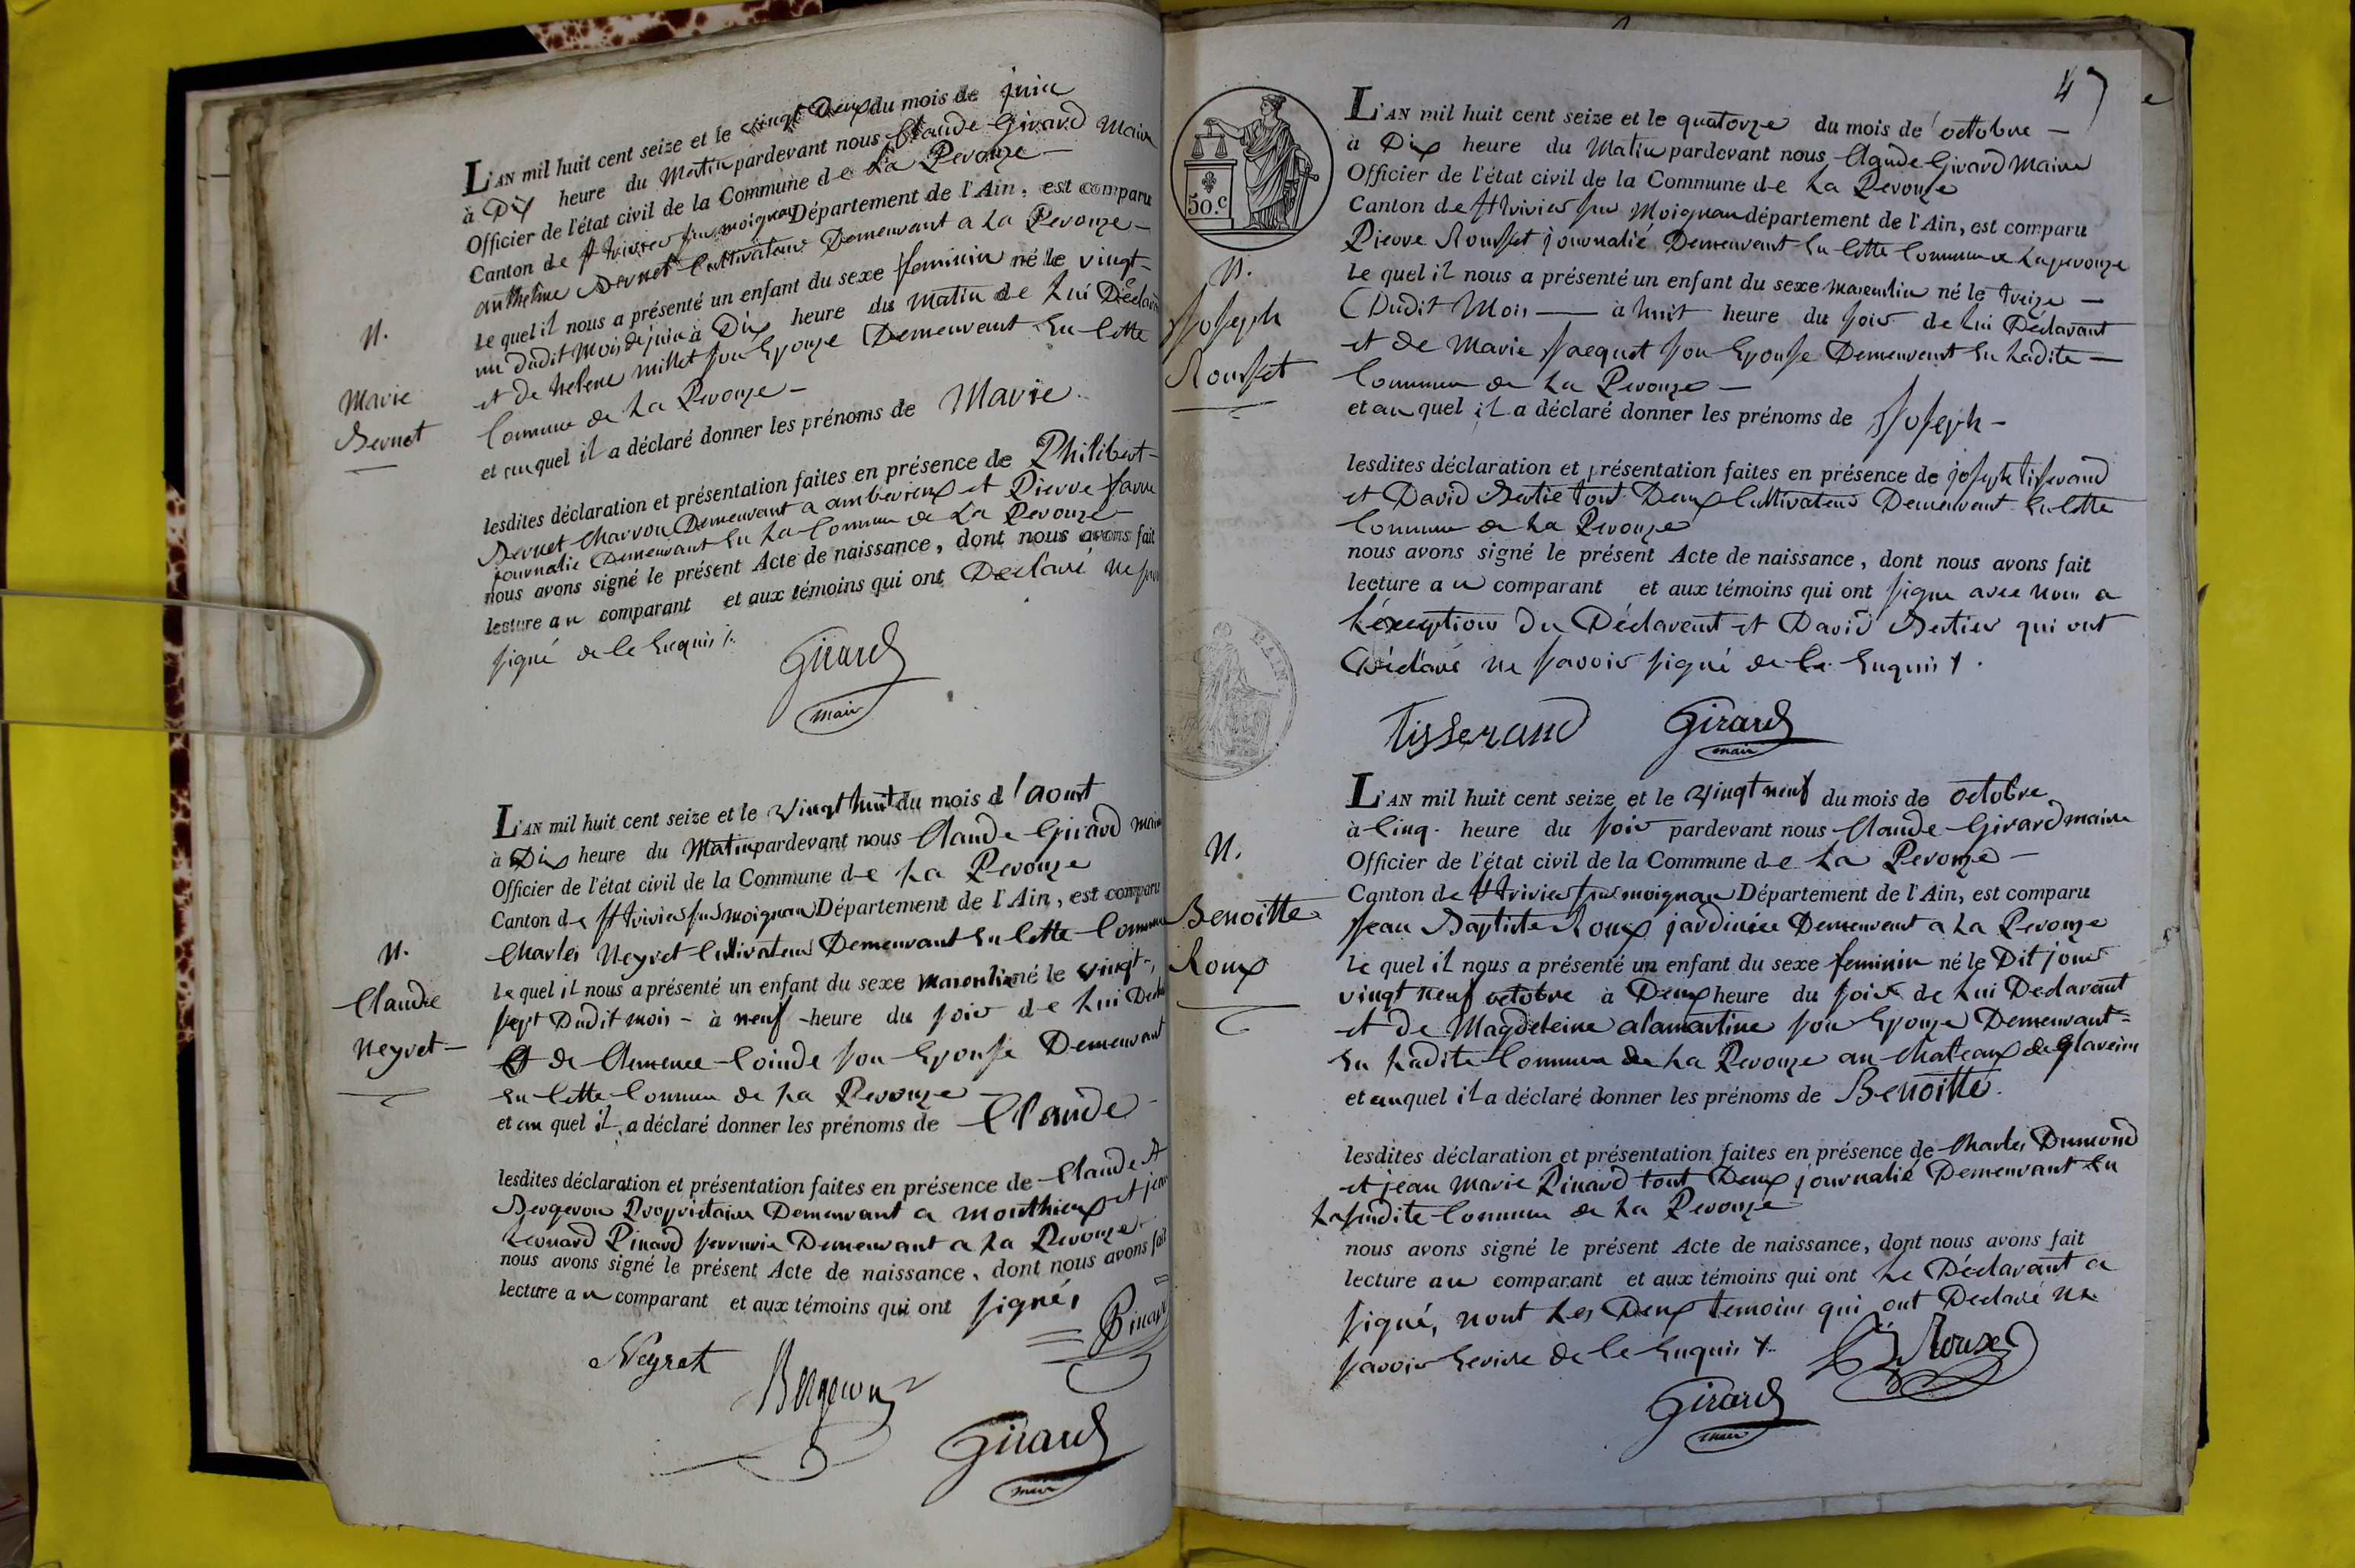 L'AN mil huit cent seize et le vingt Deux du mois de juin
à Dix heure du Matin pardevant nous Claude Girard Maire
Officier de l'état civil de la Commune de La Perouze
Canton de St trivier sur moignan Département de l'Ain, est comparu
anthelme Bernet Cultivateur Demeurant a La Perouze
le quel il nous a présenté un enfant du sexe feminin né le vingt
un dudit Mois de juin à Dix heure du Matin de Lui Déclarant
et de helene millet son Epouze Demeurant En Cette
Commune de La Perouze
et au quel il a déclaré donner les prénoms de Marie
lesdites déclaration et présentation faites en présence de Philibert
Bernet Charron Demeurant a amberieux et Pierre favre
journalié Demeurant En La Commune de La Perouze
nous avons signé le présent Acte de naissance, dont nous avons fait
lecture au comparant et aux témoins qui ont Declaré ne
signé de le Enquis
N.
Marie
Bernet
Girard
maire
L'AN mil huit cent seize et le Vingt huit du mois d'aoust
à Dix heure du Matin pardevant nous Claude Girard maire
Officier de l'état civil de la Commune de La Perouze
Canton de St trivier sur moignan Département de l'Ain, est comparu
Charles Neyret Cultivateur Demeurant En Cette Commune
le quel il nous a présenté un enfant du sexe masculin né le vingt
sept Dudit mois à neuf heure du soir de Lui
et de Clemence Coinde son Epouse Demeurant
En Cette Commune de La Perouze
et au quel il a déclaré donner les prénoms de Claude
lesdites déclaration et présentation faites en présence de Claude
Bergeron Proprietaire Demeurant a monthieux et jean
Leonard Pinard serrurie Demeurant a La Perouze
nous avons signé le présent Acte de naissance, dont nous avons fait
lecture au comparant et aux témoins qui ont signé,
N.
Claude
Neyret
Pinard
Neyret
Bergeron
Girard
maire
47
L'AN mil huit cent seize et le quatorze du mois de octobre
à Dix heure du Matin pardevant nous Claude Girard Maire
Officier de l'état civil de la Commune de La Perouze
Canton de St trivier sur Moignan département de l'Ain, est comparu
Pierre Rousset journalié Demeurent En Cette Commune Laperouze
le quel il nous a présenté un enfant du sexe masculin né le treize
Dudit Mois à huit heure du soir de Lui Déclarant
et de Marie Jacquet son Epouse Demeurent En Ladite
Commune de La Perouze
et au quel il a déclaré donner les prénoms de Joseph
lesdites déclaration et présentation faites en présence de joseph tiserand
et David Bertie tout Deux Cultivateur Demeurant En Cette
Commune de La Perouze
nous avons signé le présent Acte de naissance, dont nous avons fait
lecture au comparant et aux témoins qui ont signe avec nous a
L'éxeption du Déclarent et David Bertier qui ont
Déclaré ne savoir signé de le Enquis
50.c
N.
Joseph
Rousset
AIN
Tisserand
Girard
maire
L'AN mil huit cent seize et le Vingt neuf du mois de octobre
à Cinq heure du soir pardevant nous Claude Girard maire
Officier de l'état civil de la Commune de La Perouze
Canton de St trivier sur moignan Département de l'Ain, est comparu
Jean Baptiste Roux jardiniée Demeurent a La Perouze
le quel il nous a présenté un enfant du sexe feminin né le Dit jour
vingt neuf octobre à Deux heure du soir de Lui Declarant
et de Magdeleine alamartine son Epouze Demeurant
En Ladite Commune de La Perouze au Chateaux de Glareins
et auquel il a déclaré donner les prénoms de Benoitte.
lesdites déclaration et présentation faites en présence de Charles Dumond
et jean Marie Pinard tout Deux journalié Demeurant En
Lasudite Commune de La Perouze
nous avons signé le présent Acte de naissance, dont nous avons fait
lecture au comparant et aux témoins qui ont Le Déclarant a
signé, nont Les Deux temoins qui ont Declaré ne
savoir Ecrire de le Enquis
N.
Benoitte
Roux
Roux
Girard
maire